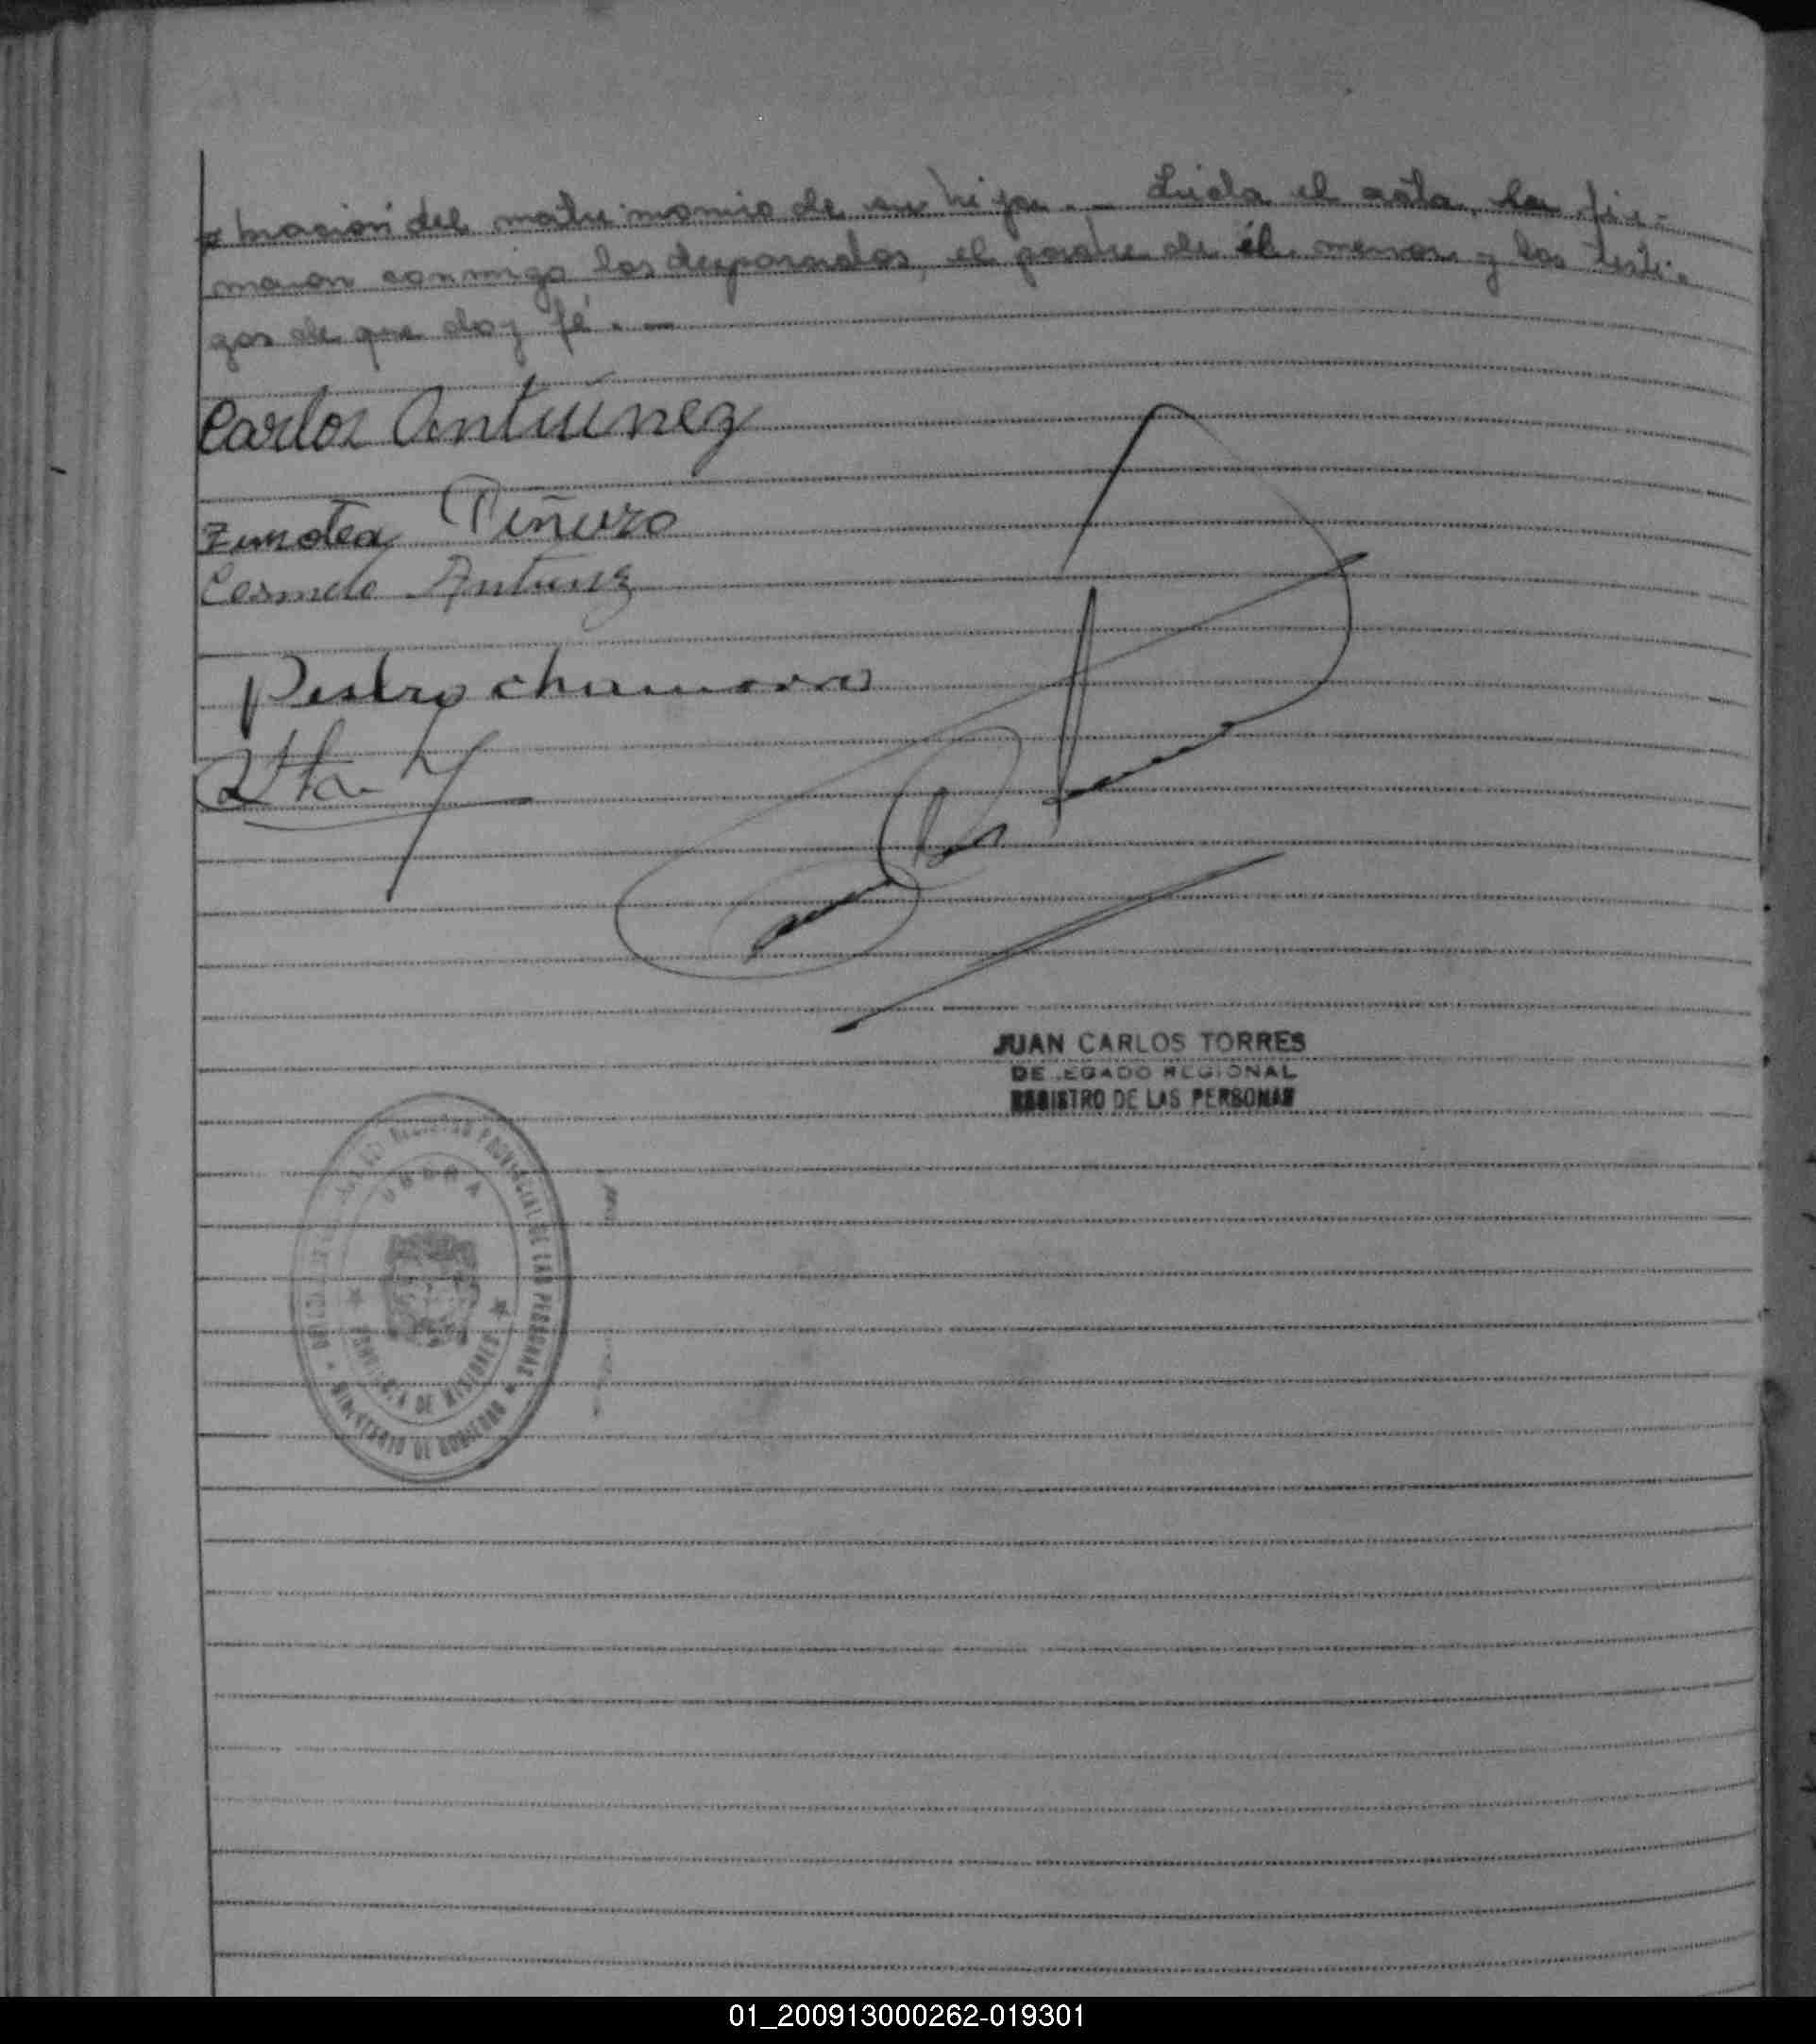 bración del matrimonio de su hijo. - Leída el acta, la fir-
maron conmigo los desposados, el padre de él menor y los testi-
gos de que doy fé. -
Carlos Antúnez
Timotea Piñero
Carmelo Antunez
Pedro chamorro
JUAN CARLOS TORRES
DELEGADO REGIONAL
REGISTRO DE LAS PERSONAS
REGISTRO PROVINCIAL DE LAS PERSONAS
OBERA
PROVINCIA DE MISIONES
MINISTERIO DE GOBIERNO
01_200913000262-019301